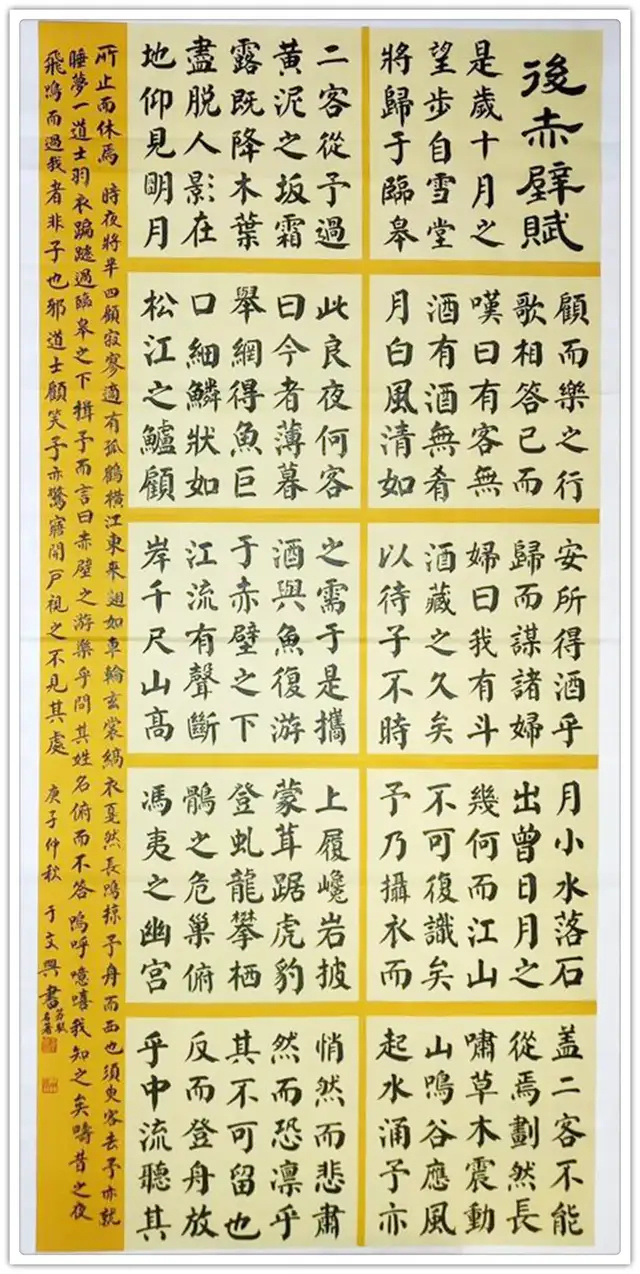 後赤壁賦
是歲十月之
望步自雪堂
將歸于臨皋
二客從予過
黃泥之坂霜
露既降木葉
盡脫人影在
地仰見明月
顧而樂之行
歌相答已而
嘆曰有客無
酒有酒無肴
月白風清如
此良夜何客
曰今者薄暮
舉網得魚巨
口細鱗狀如
松江之鱸顧
安所得酒乎
歸而謀諸婦
婦曰我有斗
酒藏之久矣
以待子不時
之需于是攜
酒與魚復游
于赤壁之下
江流有聲斷
岸千尺山高
月小水落石
出曾日月之
幾何而江山
不可復識矣
予乃攝衣而
上履巉岩披
蒙茸踞虎豹
登虬龍攀栖
鶻之危巢俯
馮夷之幽宮
盖二客不能
從焉劃然長
嘯草木震動
山鳴谷應風
起水涌予亦
悄然而悲肅
然而恐凛乎
其不可留也
反而登舟放
乎中流聽其
所止而休焉 時夜將半四顧寂寥適有孤鶴橫江東來翅如車輪玄裳縞衣戛然長鳴掠予舟而西也須臾客去予亦就
睡夢一道士羽衣蹁躚過臨皋之下揖予而言曰赤壁之游樂乎問其姓名俯而不答嗚呼噫嘻我知之矣疇昔之夜
飛鳴而過我者非子也邪道士顧笑予亦驚寤開戶視之不見其處 庚子仲秋 于文興書